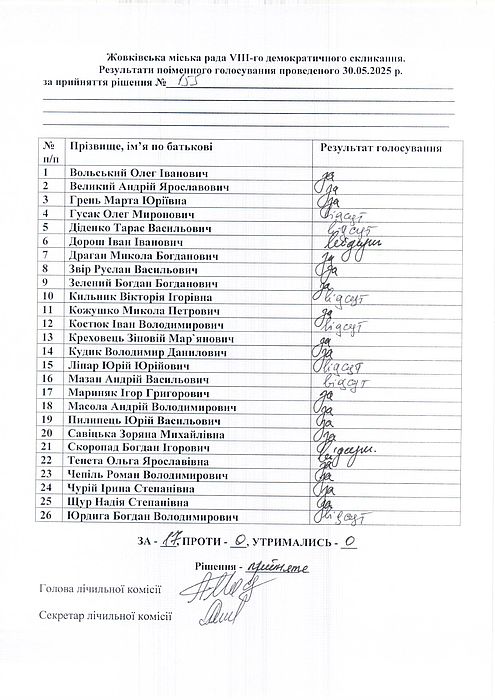 Жовківська міська рада VIII-го демократичного скликання.
Результати поіменного голосування проведеного 30.05.2025 р.
за прийняття рішення № 155
№ п/п Прізвище, ім’я по батькові Результат голосування
1 Вольський Олег Іванович за
2 Великий Андрій Ярославович за
3 Грень Марта Юріївна за
4 Гусак Олег Миронович відсут
5 Діденко Тарас Васильович відсут
6 Дорош Іван Іванович
7 Драган Микола Богданович за
8 Звір Руслан Васильович за
9 Зелений Богдан Богданович за
10 Кильник Вікторія Ігорівна відсут
11 Кожушко Микола Петрович за
12 Костюк Іван Володимирович відсут
13 Креховець Зіновій Мар`янович за
14 Кудик Володимир Данилович за
15 Ліпар Юрій Юрійович відсут
16 Мазан Андрій Васильович відсут
17 Мариняк Ігор Григорович за
18 Масола Андрій Володимирович за
19 Пилипець Юрій Васильович за
20 Савіцька Зоряна Михайлівна за
21 Скоропад Богдан Ігорович
22 Тепета Ольга Ярославівна за
23 Чепіль Роман Володимирович за
24 Чурій Ірина Степанівна за
25 Щур Надія Степанівна за
26 Юрдига Богдан Володимирович відсут
ЗА - 17, ПРОТИ - 0, УТРИМАЛИСЬ - 0
Рішення - прийнято
Голова лічильної комісії
Секретар лічильної комісії